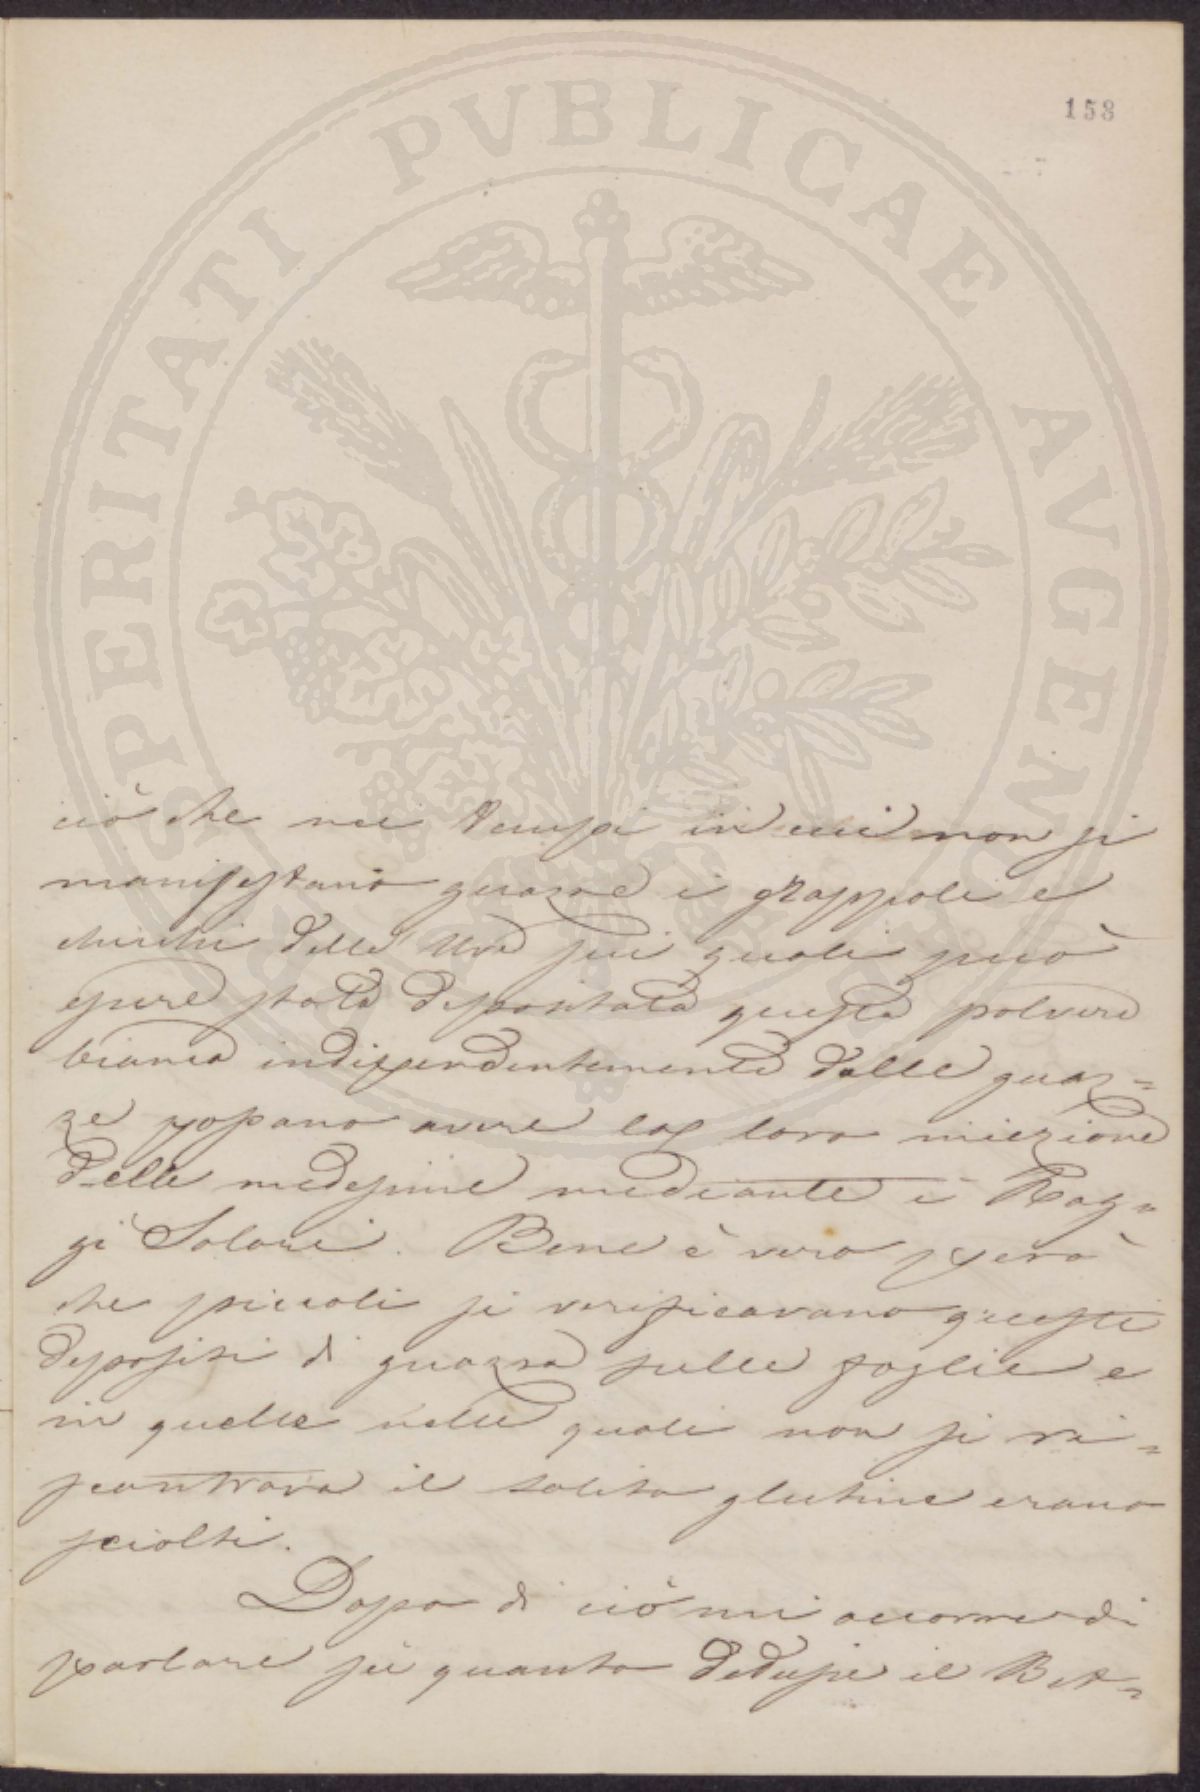 153
PROSPERITATI PVBLICAE AVGENDAE
ciò che nei tempi in cui non si
manifestano guazze i grappoli e
chicchi delle Uve sui quali può
essere stata depositata questa polvere
bianca indipendentemente dalle guaz=
ze possano avere la loro
delle medesime mediante i Rag=
gi Solari. Bene è vero però
che piccoli si verificavano questi
depositi di guazza sulle foglie e
in quelle nelle quali non si ri=
scontrava il solito glutine erano
sciolti.
Dopo di ciò mi occorre di
parlare su quanto dedusse il Bat=